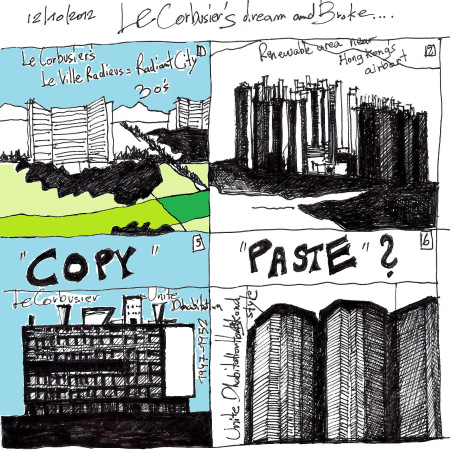 12/10/2012 Le Corbusier's dream and Broke....
1
Le Corbusier's
Le Ville Radieus = Radiant City
30s
2
Renewable area near
Hong Kong's
airport
"COPY"
Le Corbusier
Unite
Dhabitation
1947-1952
6
"PASTE"?
Unite Dhabitation Hong Kong
style